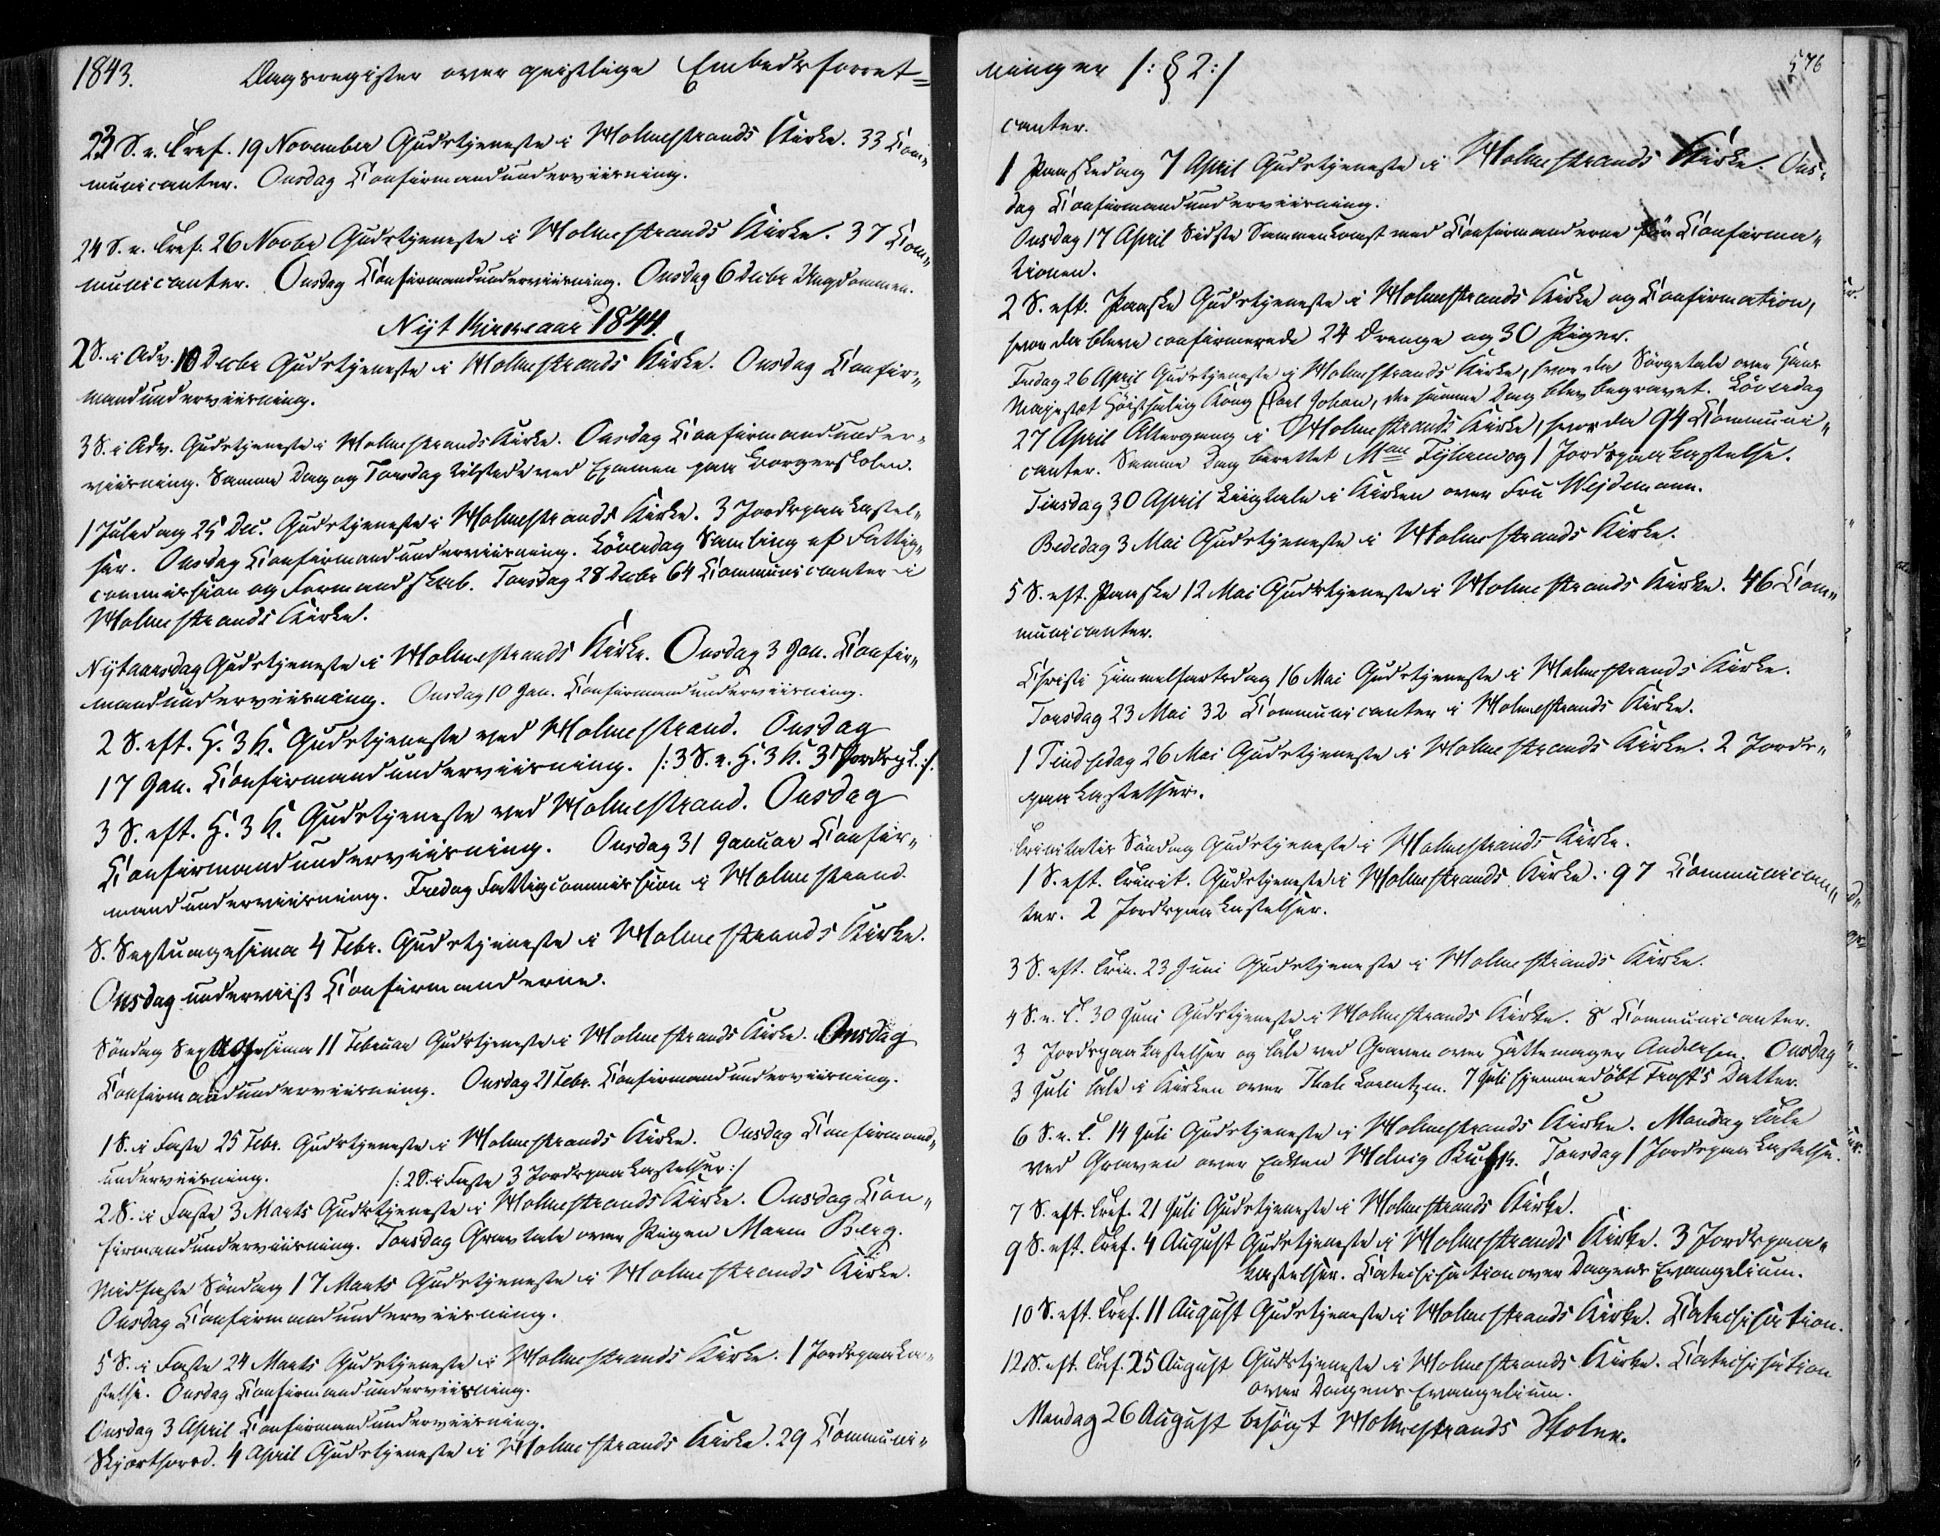 1843. Dagsregister over geistlige Embedsforret=
23 S. e. Tref. 19 November Gudstjeneste i Holmestrands Kirke. 33 Com„
municanter. Onsdag Confirmandunderviisning.
24 S. e. Tref. 26 Novbr Gudstjeneste i Holmestrands Kirke. 37 Com„
municanter. Onsdag Confirmandunderviisning. Onsdag 6 Decbr Ungdommen.
Nyt Kirkeaar 1844.
2 S. i Adv. 10 Decbr Gudstjeneste i Holmestrands Kirke. Onsdag Confir„
mandunderviisning.
3 S. i Adv. Gudstjeneste i Holmestrands Kirke. Onsdag Confirmandunder„
viisning. Samme Dag og Torsdag tilstede ved Examen paa Borgerskolen.
1 Juledag 25 Dec. Gudstjeneste i Holmestrands Kirke. 3 Jordspaakastel„
ser. Onsdag Confirmandunderviisning. Löverdag Samling af Fattig„
commission og Formandskab. Torsdag 28 Decbr 64 Communicanter i
Holmestrands Kirke.
Nytaarsdag Gudstjeneste i Holmestrands Kirke. Onsdag 3 Jan. Confir„
mandunderviisning. Onsdag 10 Jan. Confirmandunderviisning.
2 S. eft. H. 3 K. Gudstjeneste ved Holmestrand. Onsdag
17 Jan. Confirmandunderviisning. /: 3 S. e. H. 3 K. 3 Jordspk. :/
3 S. eft. H. 3 K. Gudstjeneste ved Holmestrand. Onsdag
Confirmandunderviisning. Onsdag 31 Januar Confir„
mandunderviisning. Fredag Fattigcommission i Holmestrand.
S. Septuagesima 4 Febr. Gudstjeneste i Holmestrands Kirke.
Onsdag underviist Confirmanderne.
Søndag 11 Februar Gudstjeneste i Holmestrands Kirke. Onsdag
Confirmandunderviisning. Onsdag 21 Febr. Confirmandunderviisning.
1 S. i Faste 25 Febr. Gudstjeneste i Holmestrands Kirke. Onsdag Confirmand„
underviisning. /: 2 S. i Faste 3 Jordspaakastelser :/
2 S. i Faste 3 Marts Gudstjeneste i Holmestrands Kirke. Onsdag Con„
firmandunderviisning. Torsdag Gravtale over Pigen Maren Berg.
Midfaste Søndag 17 Marts Gudstjeneste i Holmestrands Kirke.
Onsdag Confirmandunderviisning.
5 S. i Faste 24 Marts Gudstjeneste i Holmestrands Kirke. 1 Jordspaaka„
stelse. Onsdag Confirmandunderviisning.
Onsdag 3 April Confirmandunderviisning.
Skjærthorsd. 4 April Gudstjeneste i Holmestrands Kirke. 29 Communi„
ninger /: § 2 :/ 576
canter.
1 Paaskedag 7 April Gudstjeneste i Holmestrands Kirke. Ons„
dag Confirmandunderviisning.
Onsdag 17 April Sidste Sammenkomst med Confirmanderne før Confirma„
tionen.
2 S. eft. Paaske Gudstjeneste i Holmestrands Kirke og Confirmation,
hvor da bleve confirmerede 24 Drenge og 30 Piger.
Fredag 26 April Gudstjeneste i Holmestrands Kirke, hvor da Sørgetale over Hans
Majestæt Høistsalig Kong Carl Johan, der samme Dag blev begravet. Löverdag
27 April Altergang i Holmestrands Kirke, hvor da 94 Communi„
canter. Samme Dag berettet og 1 Jordspaakastelse.
Tirsdag 30 April Liigtale i Kirken over Fru Wejdemann.
Bededag 3 Mai Gudstjeneste i Holmestrands Kirke.
5 S. eft. Paaske 12 Mai Gudstjeneste i Holmestrands Kirke. 46 Com„
municanter.
Christi Himmelfartsdag 16 Mai Gudstjeneste i Holmestrands Kirke.
Torsdag 23 Mai 32 Communicanter i Holmestrands Kirke.
1 Pindsedag 26 Mai Gudstjeneste i Holmestrands Kirke. 2 Jords„
paakastelser.
Trinitatis Søndag Gudstjeneste i Holmestrands Kirke.
1 S. eft. Trinit. Gudstjeneste i Holmestrands Kirke. 97 Communican„
ter. 2 Jordspaakastelser.
3 S. eft. Trin. 23 Juni Gudstjeneste i Holmestrands Kirke.
4 S. e. T. 30 Juni Gudstjeneste i Holmestrands Kirke. 8 Communicanter.
3 Jordspaakastelser og Tale ved Graven over Hattemager Andersen. Onsdag
3 Juli Tale i Kirken over Thale Lorentzen. 7 Juli hjemmedöbt Datter.
6 S. e. T. 14 Juli Gudstjeneste i Holmestrands Kirke. Mandag Tale
ved Graven over Enken Helvig. Torsdag 1 Jordspaakastelse.
7 S. eft. Tref. 21 Juli Gudstjeneste i Holmestrands Kirke.
9 S. eft. Tref. 4 August Gudstjeneste i Holmestrands Kirke. 3 Jordspaa„
kastelser. Catechisation over Dagens Evangelium.
10 S. eft. Tref. 11 August Gudstjeneste i Holmestrands Kirke. Catechisation.
12 S. eft. Tref. 25 August Gudstjeneste i Holmestrands Kirke. Catechisation
over Dagens Evangelium.
Mandag 26 August besögt Holmestrands Skoler.